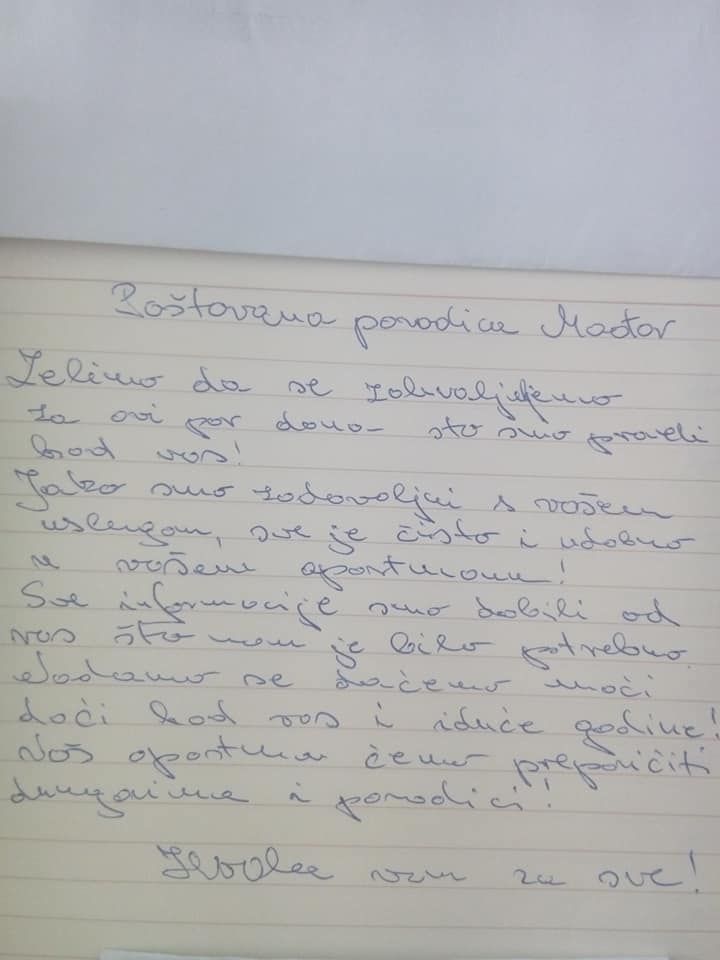 Poštovana porodica Mađor
Želimo da se zahvaljujemo
za ovi par dana- što smo proveli
kod vas!
Jako smo zadovoljni s vašem
uslugom, sve je čisto i udobno
u vašem apartmanu!
Sve informacije smo dobili od
vas što nam je bilo potrebno.
Nadamo se da ćemo moći
doći kod vas i iduće godine!
Vaš apartman ćemo preporičiti
drugaima i porodici!
Hvala vam za sve!